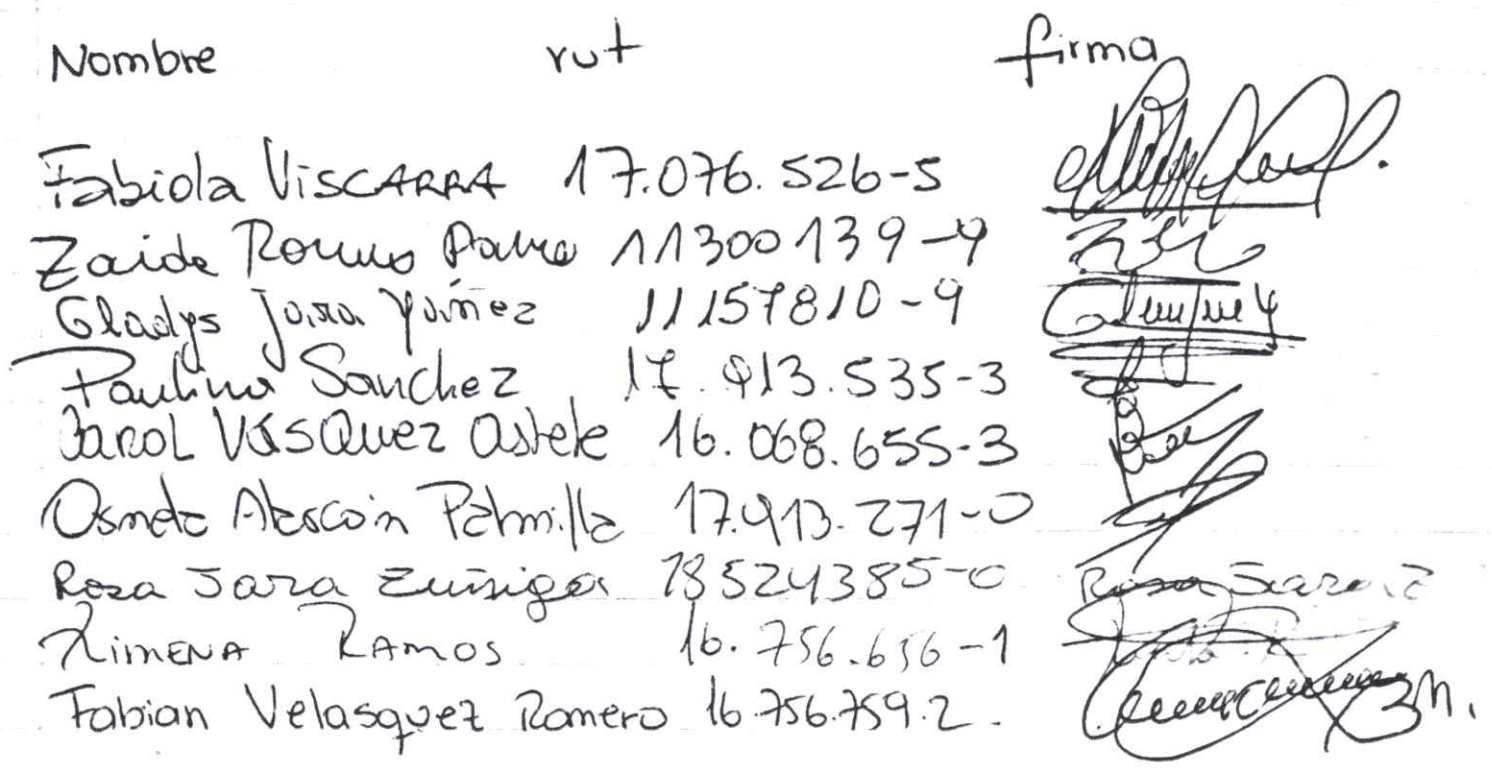 Nombre rut firma
Fabiola Viscarra 17.076.526-5
Zaida Romo 11300139-9
Gladys Jara Yáñez 11157810-9
Paulina Sanchez 17.913.535-3
Carol Vásquez Astete 16.068.655-3
Alarcón Palmilla 17.913.271-0
Rosa Jara Zuñiga 18524385-0 Rosa Jara Z
Ximena Ramos 16.756.656-1
Fabian Velasquez Romero 16.756.759.2.